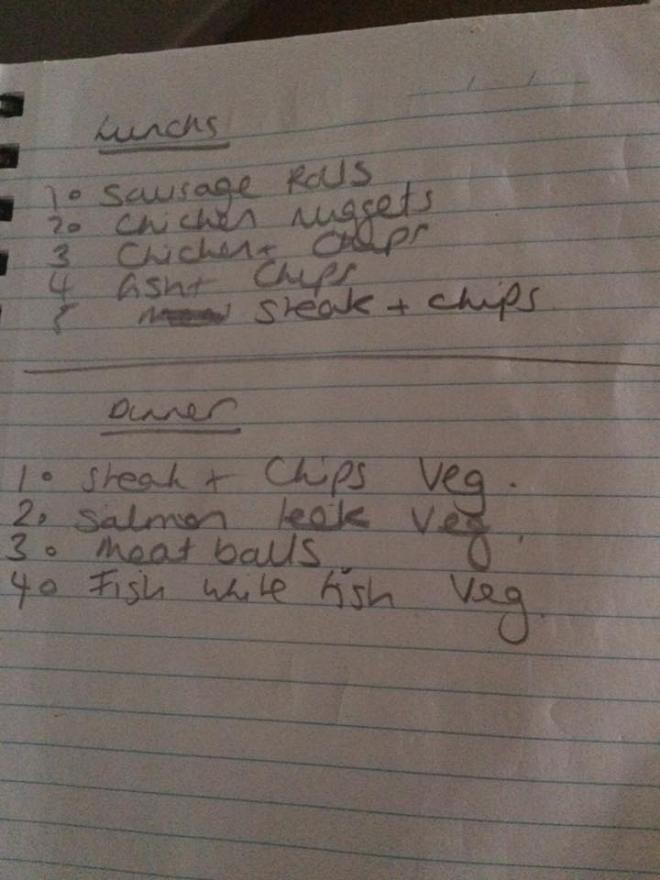 Lunchs
1. Sausage Rolls
2. Chicken nuggets
3 Chicken + Chips
4 fish + Chips
5 steak + chips
Dinner
1. Steak + Chips Veg.
2. Salmon leak Veg.
3. Meat balls.
4. Fish white fish Veg.